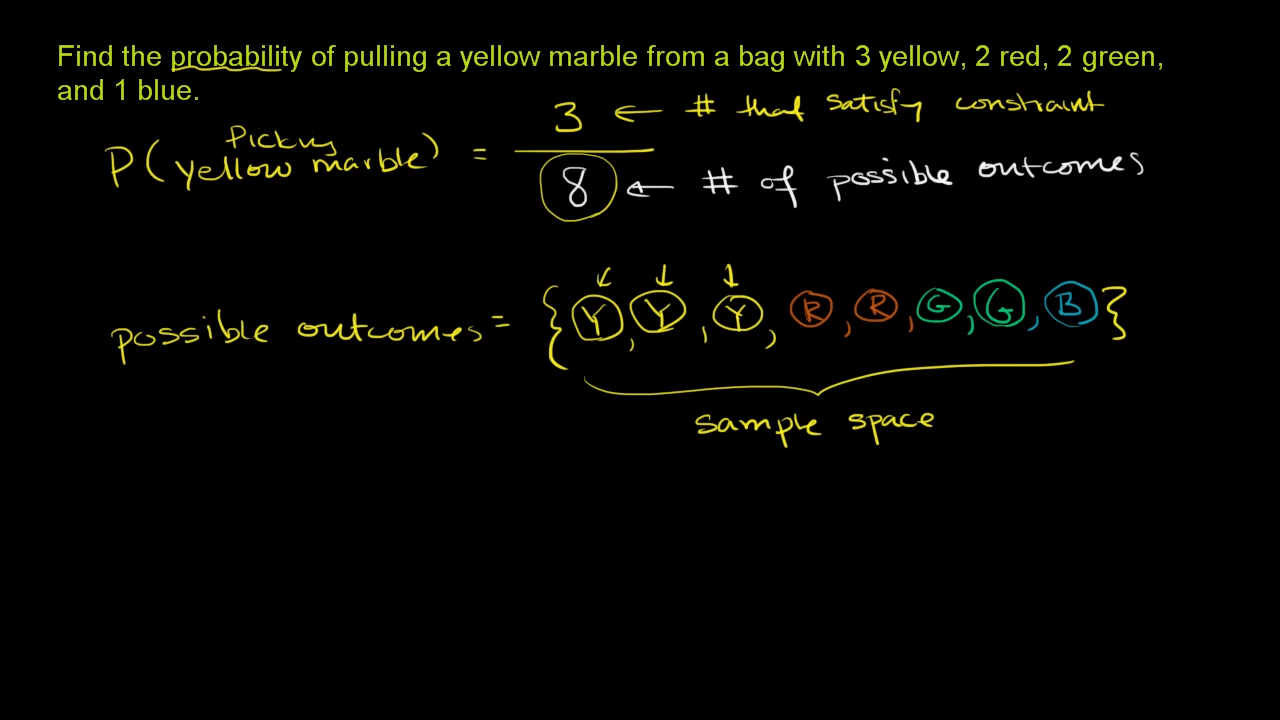 Find the probability of pulling a yellow marble from a bag with 3 yellow, 2 red, 2 green,
and 1 blue.
P(picking yellow marble) = 3/8
3 ← # that satisfy constraint
8 ← # of possible outcomes
possible outcomes = {Y, Y, Y, R, R, G, G, B}
sample space